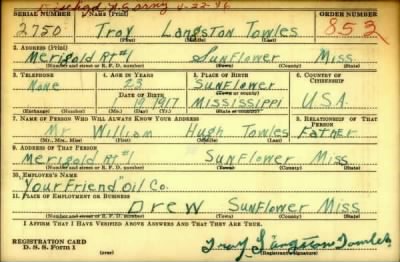 Disched U.S. Army 4-22-46
SERIAL NUMBER 1. NAME (Print) ORDER NUMBER
2750 Troy Langston Towles 853
(First) (Middle) (Last)
2. ADDRESS (Print)
Merigold Rt#1 Sunflower Miss
(Number and street or R. F. D. number) (Town) (County) (State)
3. TELEPHONE 4. AGE IN YEARS 5. PLACE OF BIRTH 6. COUNTRY OF CITIZENSHIP
None 23 Sunflower
DATE OF BIRTH (Town or county)
19 1917 Mississippi U.S.A.
(Exchange) (Number) (Mo.) (Day) (Yr.) (State or country)
7. NAME OF PERSON WHO WILL ALWAYS KNOW YOUR ADDRESS 8. RELATIONSHIP OF THAT PERSON
Mr. William Hugh Towles Father
(Mr., Mrs., Miss) (First) (Middle) (Last)
9. ADDRESS OF THAT PERSON
Merigold Rt#1 Sunflower Miss
(Number and street or R. F. D. number) (Town) (County) (State)
10. EMPLOYER'S NAME
"Your Friend" Oil Co.
11. PLACE OF EMPLOYMENT OR BUSINESS
Drew Sunflower Miss
(Number and street or R. F. D. number) (Town) (County) (State)
I AFFIRM THAT I HAVE VERIFIED ABOVE ANSWERS AND THAT THEY ARE TRUE.
REGISTRATION CARD
D. S. S. Form 1 (over) Troy Langston Towles
(Registrant's signature)